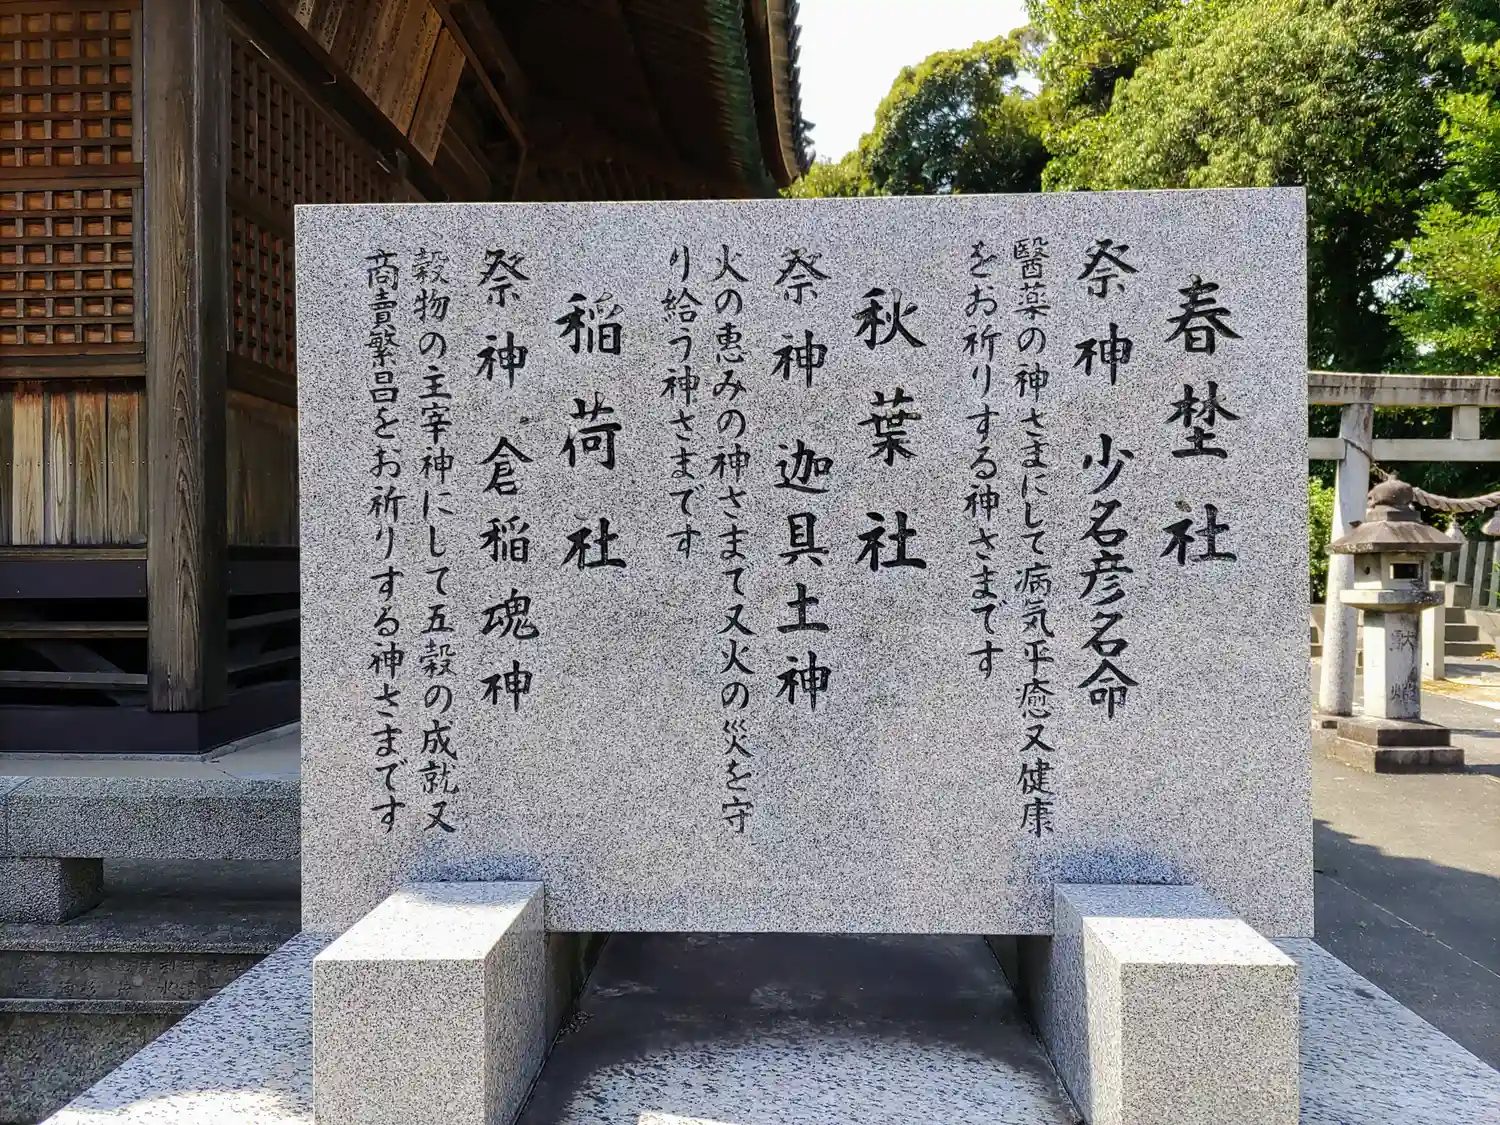 春埜社
祭神 少名彦名命
醫薬の神さまにして病気平癒又健康
をお祈りする神さまです
秋葉社
祭神 迦具土神
火の恵みの神さまて又火の災を守
り給う神さまです
稲荷社
祭神 倉稲魂神
穀物の主宰神にして五穀の成就又
商賣繁昌をお祈りする神さまです
献燈